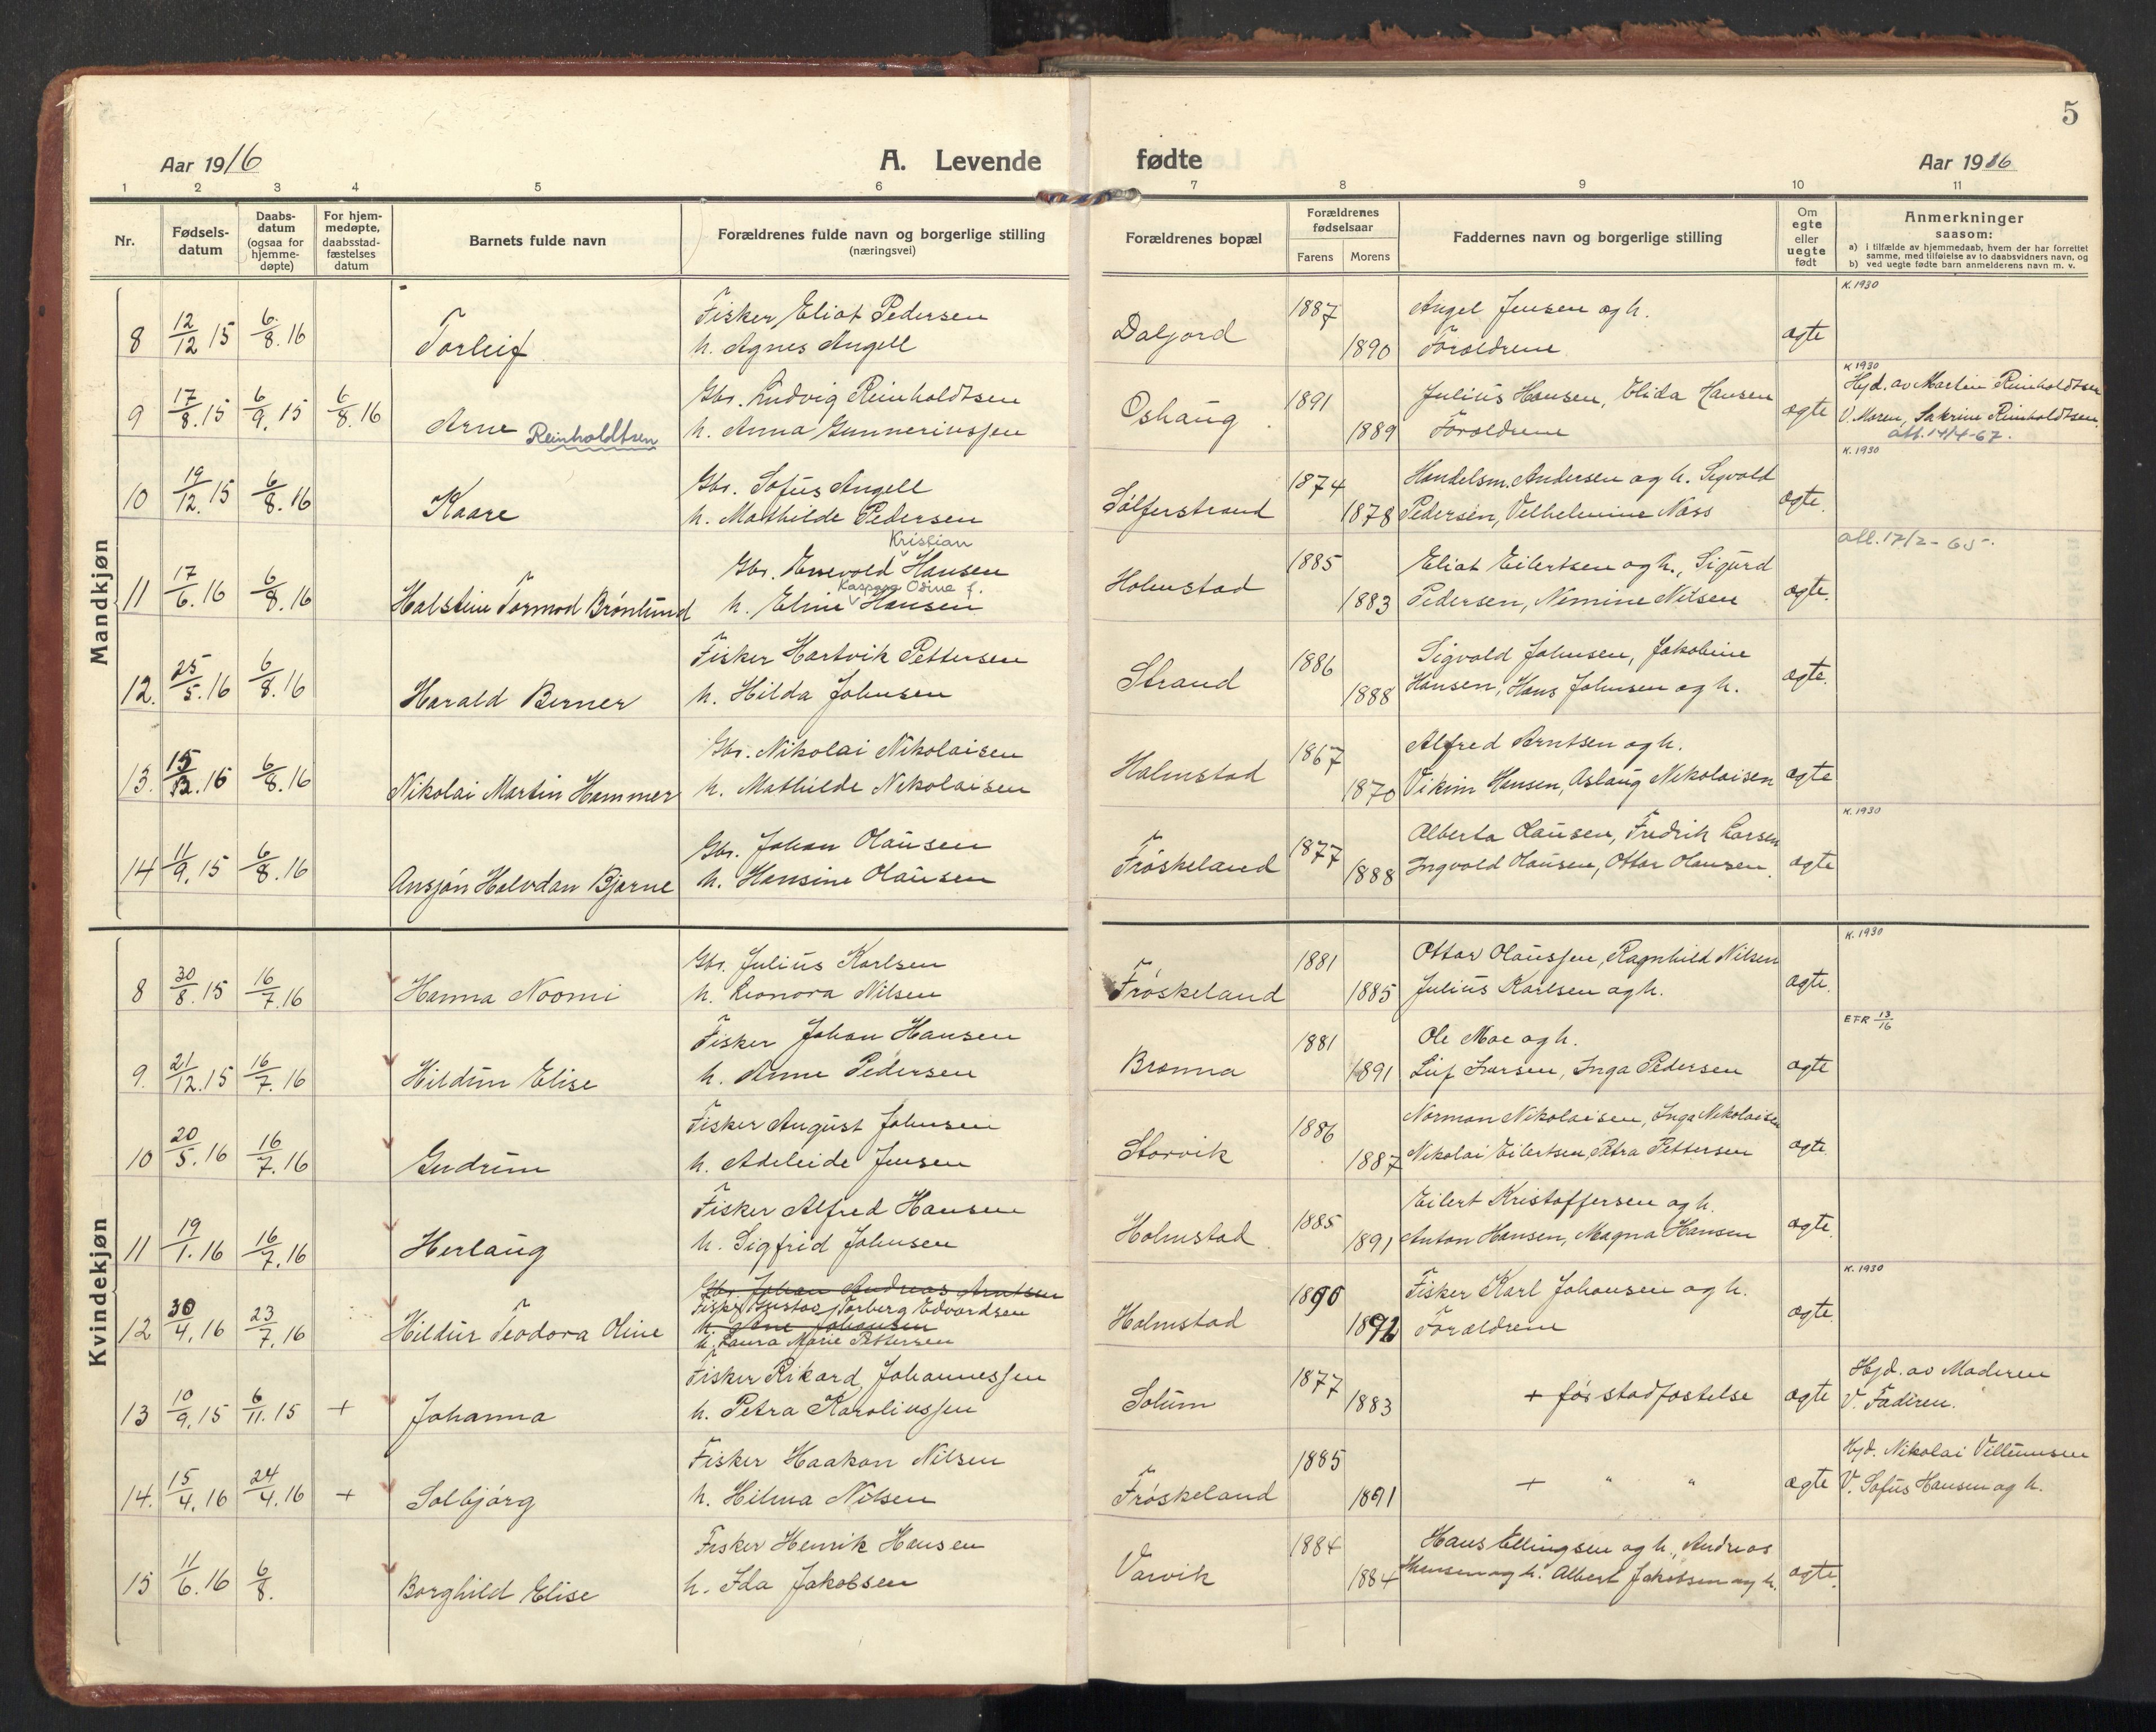 5
Aar 1916 A. Levende fødte Aar 1916
1 2 3 4 5 6 7 8 9 10 11
Nr.
Fødsels-
datum
Daabs-
datum
(ogsaa for
hjemme-
døpte)
For hjem-
medøpte,
daabsstad-
fæstelses
datum
Barnets fulde navn
Forældrenes fulde navn og borgerlige stilling
(næringsvei)
Forældrenes bopæl
Forældrenes
fødselsaar
Farens Morens
Faddernes navn og borgerlige stilling
Om
egte
eller
uegte
født
Anmerkninger
saasom:
a) i tilfælde av hjemmedaab, hvem der har forrettet
samme, med tilføielse av to daabsvidners navn, og
b) ved uegte fødte barn anmelderens navn m. v.
Mandkjøn
K. 1930
Fisker Eliot Pedersen 1887 Angel Jensen og h.
8 12/12 15 6/8. 16 Torleif h. Agnes Angell Daljord 1890 Foreldrene ægte
K 1930
Gbr. Ludvig Reinholdtsen 1891 Julius Hansen, Elida Hansen Hjd. av Martin Reinholdtsen
9 17/8. 15 6/9. 15 6/8. 16 Arne Reinholdtsen h. Anna Gunneriussen Oshaug 1889 Foreldrene ægte V. Maren, Sakrine Reinholdtsen
att. 14/4-67.
K. 1930
Gbr. Sofus Angell 1874 Handelsm. Andersen og h. Sigvold
10 19/12. 15 6/8. 16 Kaare h. Mathilde Pedersen Sølferstrand 1878 Pedersen, Vilhelmine Næss ægte.
Kristian att. 17/2-65.
Gbr. Enevold Hansen 1885 Eliot Eilertsen og h., Sigurd
Kaspara Osine f.
11 17/6. 16 6/8. 16 Halstein Tormod Brønlund h. Eline Hansen Holmstad 1883 Pedersen, Nemine Nilsen ægte.
Fisker Hartvik Pettersen 1886 Sigvald Johnsen, Jakobine
12. 25/5. 16 6/8. 16 Harald Berner h. Hilda Johnsen Strand 1888 Hansen, Hans Johnsen og h. ægte.
Gbr. Nikolai Nikolaisen 1867 Alfred Arntsen og h.
13. 6/8. 16 Nikolai Martin Hammer h. Mathilde Nikolaisen Halmstad 1870 Hansen, Aslaug Nikolaisen ægte
K. 1930
Gbr. Johan Olausen 1877 Alberta Olausen, Fredrik Larsen
14 11/9. 15 6/8. 16 Ansjøn Halvdan Bjarne h. Hansine Olausen Frøskeland 1888 Ingvald Olausen, Ottar Olausen. ægte
Kvindekjøn
K. 1930
Gbr. Julius Karlsen 1881 Ottar Olaussen, Ragnhild Nilsen
8 30/8. 15 16/7. 16 Hanna Noomi h. Leonora Nilsen Frøskeland 1885 Julius Karlsen og h. ægte.
EFR 13/16
Fisker Johan Hansen 1881 Ole Moe og h.
9. 21/12. 15 16/7. 16 Hildun Elise h. Anne Pedersen Bromna 1891 Leif Inga Pedersen ægte
Fisker August Johnsen 1886 Norman Nikolaisen, Inga Nikolaisen
10 20/5. 16 16/7. 16 Gudrun h. Adeleide Jensen Storvik 1887 Nikolai Eilertsen, Petra Pettersen ægte.
Fisker Alfred Hansen 1885 Eilert Kristoffersen og h.
11 19/1. 16 16/7. 16 Herlaug h. Sigfrid Johnsen Holmstad 1891 Anton Hansen, Magna Hansen ægte.
K. 1930
Gbr. Johan Andreas Arntsen
Fisker Gustav Torberg Edvardsen 1890 Fisker Karl Johansen og h.
h. Ane Johansen
12 30/4. 16 23/7. 16 Hildur Teodora Oline h. Laura Marie Pettersen Holmstad 1892 Foreldrene ægte
Fisker Rikard Johannessen 1877 Hjd. av Moderen
13 10/9. 15 6/11. 15 + Johanna h. Petra Karoliussen Solum 1883 + før stadfæstelse ægte V. Faderen.
Fisker Haakon Nilsen 1885 Hjd. Nikolai Villumsen
14. 15/4. 16 24/4. 16 + Solbjørg h. Hilma Nilsen Frøskeland 1891 + " " ægte V. Sofus Hansen og h.
Fisker Henrik Hansen 1884 Hans Ellingsen og h., Andreas
15 11/6. 16 6/8. Borghild Elise h. Ida Jakobsen Varvik 1884 Hansen og h. Albert Jakobsen og h. ægte.